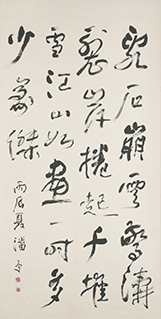 亂石崩雲驚濤
裂岸捲起千堆
雪江山如畫一時多
少豪傑
丙辰夏潘受